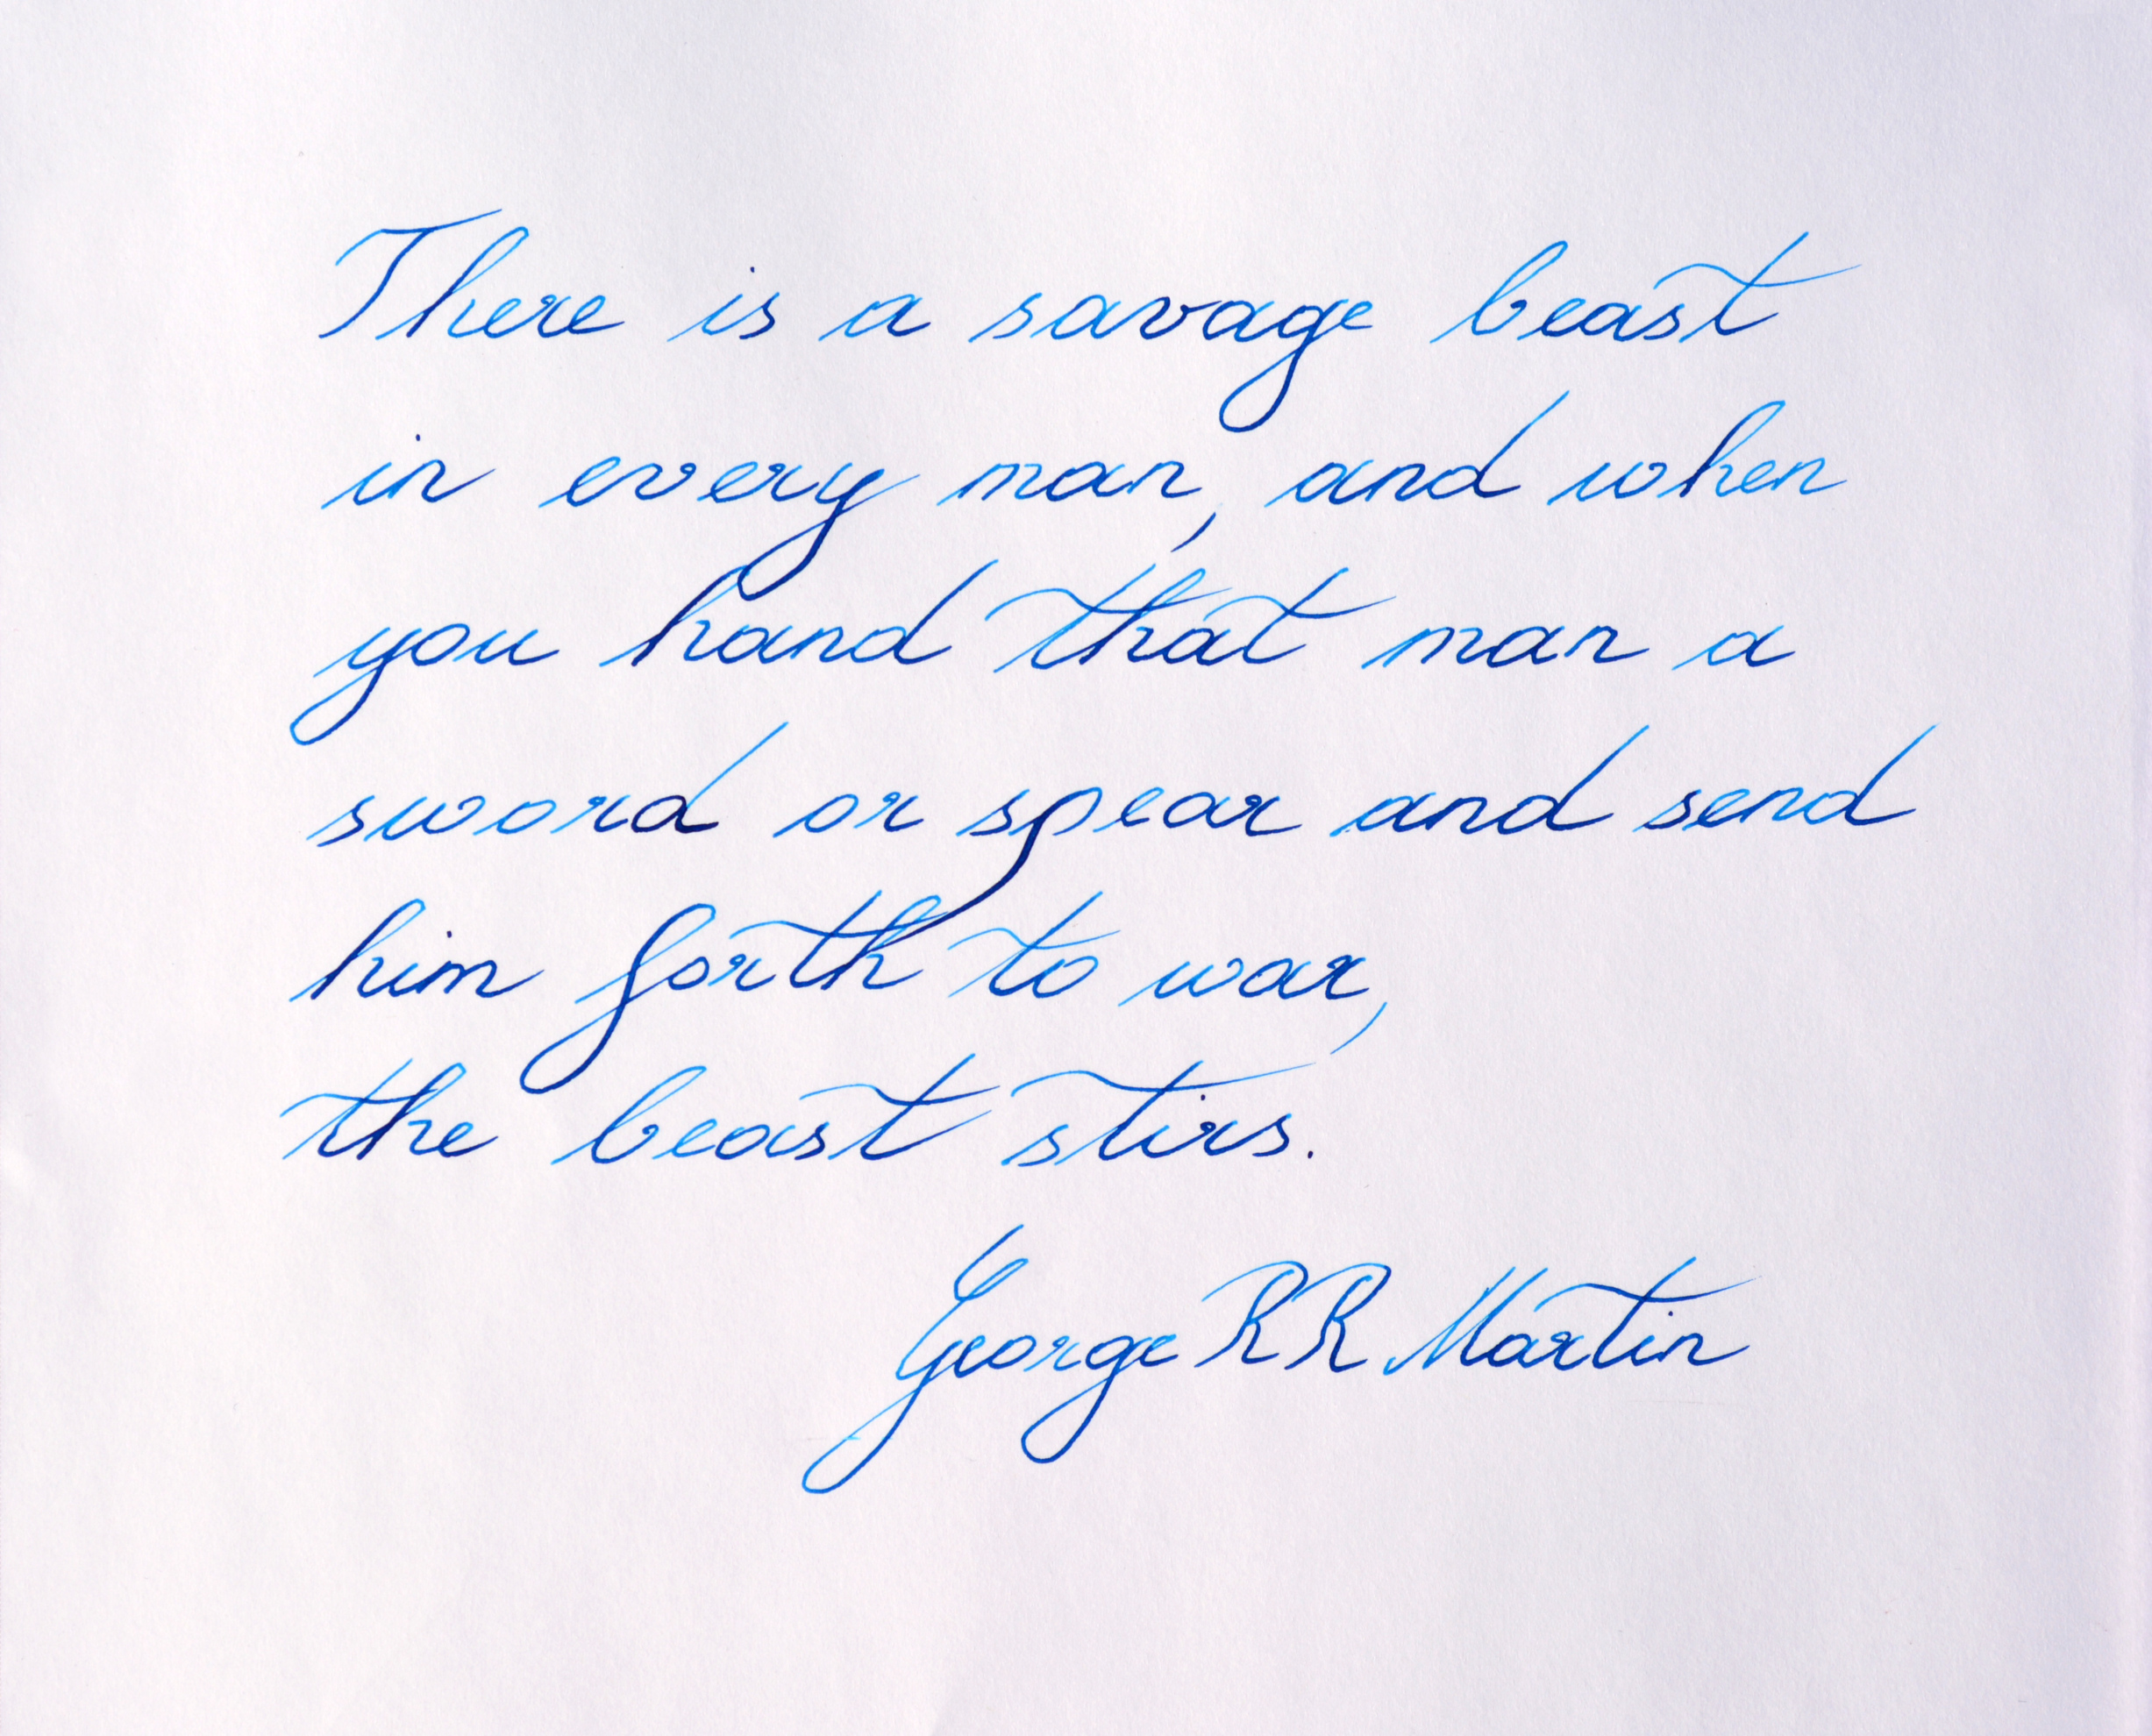 There is a savage beast
in every man, and when
you hand that man a
sword or spear and send
him forth to war,
the beast stirs.
George RR Martin